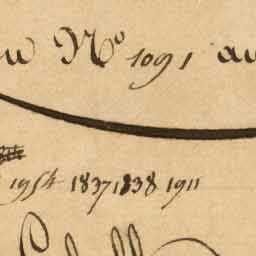 au Nº 1091 au
1954 1837 1838 1911